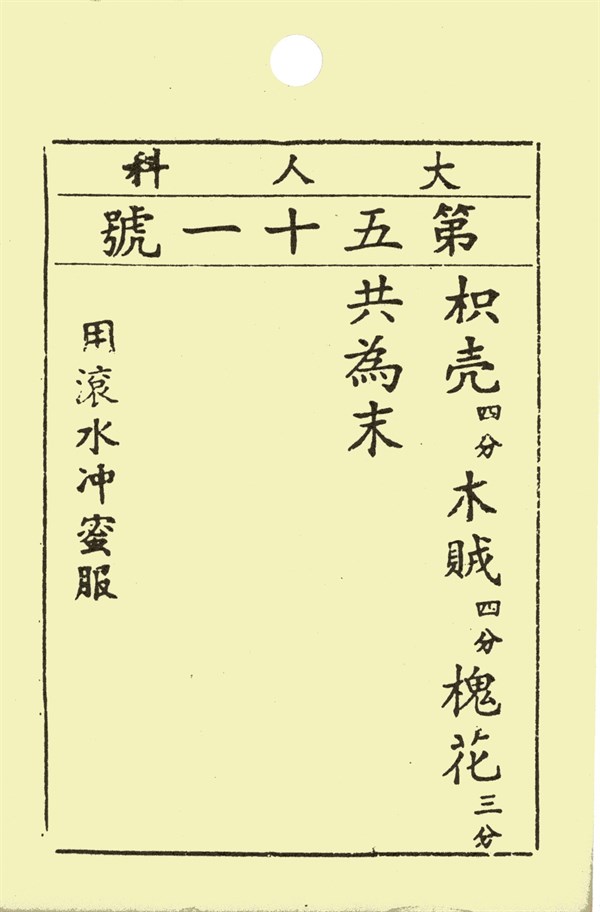 大人科
第五十一號
枳壳四分木賊四分槐花三分
共為末
用滾水冲蜜服